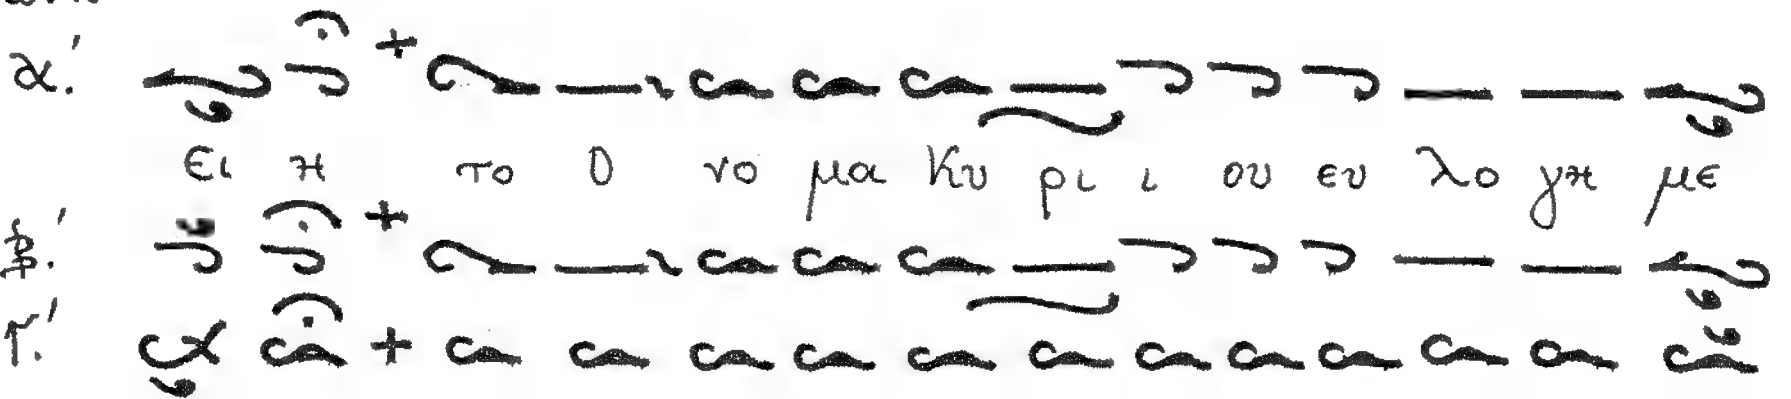 α.΄
ει η το ο νο μα Κυ ρι ι ου ευ λο γη με
β.΄
γ.΄